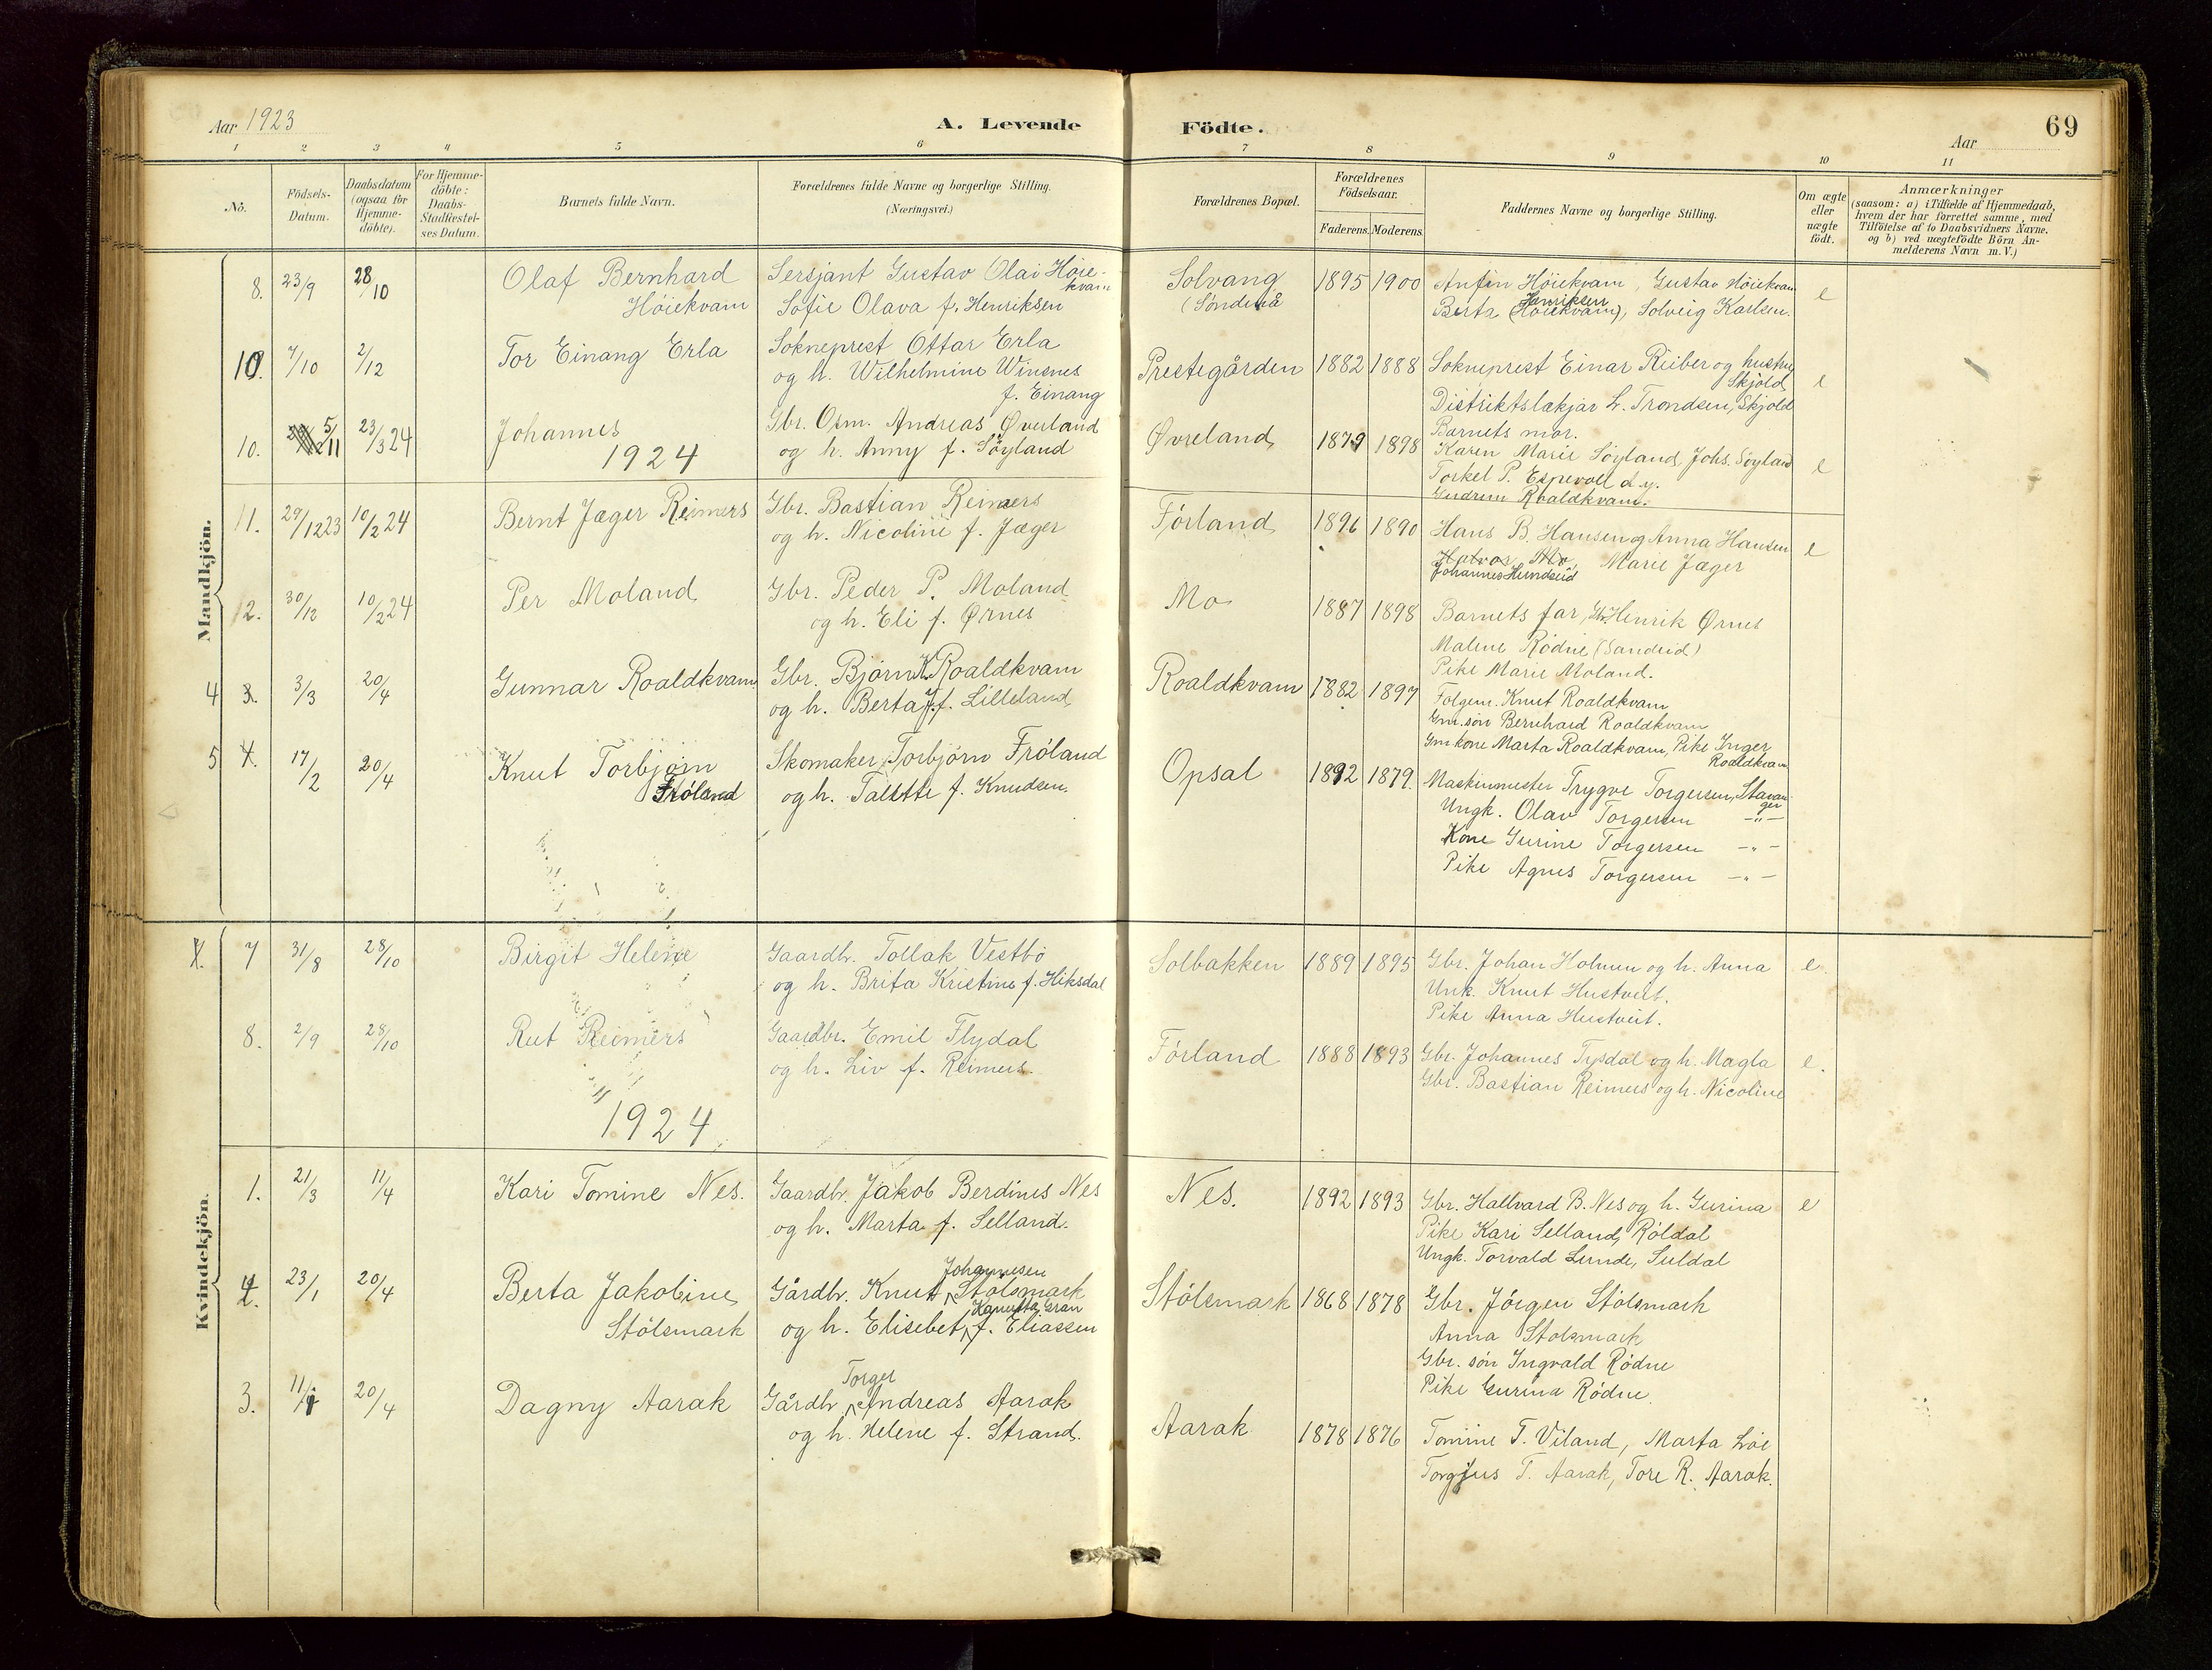 Aar 1923
A. Levende Födte.
Aar
69
1 2 3 4 5 6 7 8 9 10 11
No.
Födsels-Datum.
Daabsdatum (ogsaa for Hjemme-döbte).
For Hjemme-döbte: Daabs-Stadfæstel-ses Datum.
Barnets fulde Navn.
Forældrenes fulde Navne og borgerlige Stilling.
(Næringsvei.)
Forældrenes Bopæl.
Forældrenes Födselsaar.
Faderens. Moderens.
Faddernes Navne og borgerlige Stilling.
Om ægte eller uægte födt.
Anmærkninger
(saasom: a) i Tilfælde af Hjemmedaab,
hvem der har forrettet samme, med
Tilföielse af to Daabsvidners Navne.
og b) ved uægtefödte Börn An-
melderens Navn m.V.)
Mandkjön.
8. 23/9 28/10 Olaf Bernhard Höiekvam
Sersjant Gustav Olai Höie-kvam
Sofie Olava f. Henriksen
Solvang
(Søndenå
1895 1900
Anfin Höiekvam, Gustav Höiekvam
Berta Henriksen (Höiekvam), Solveig Karlsen.
e
10. 7/10 2/12 Tor Einang Erla
Sokneprest Ottar Erla
og h. Wilhelmine Winsnes
f. Einang
Prestegården 1882 1888
Sokneprest Einar Reiber og hustru
Skjold
Distriktslækjar L. Trondsen, Skjold
Barnets mor.
e
10. 5/11 23/3 24 Johannes
1924
Gbr. Osm. Andreas Øverland
og h. Anny f. Söyland
Øvreland 1879 1898
Karen Marie Söyland, Johs. Söyland
Torkel P. Espevoll d.y.
Gudrun Roaldkvam.
e
11. 29/12 23 10/2 24 Bernt Jæger Reimers
Gbr. Bastian Reimers
og h. Nicoline f. Jæger
Förland 1896 1890
Hans B. Hansen og Anna Hansen
Halvor Mo, Marie Jæger
Johannes Hundseid
e
12. 30/12 10/2 24 Per Moland
Gbr. Peder P. Moland
og h. Eli f. Ørnes
Mo 1887 1898
Barnets far, Gbr. Henrik Ørnes
Malene Rödne (Sandeid)
Pike Marie Moland.
4 3. 3/3 20/4 Gunnar Roaldkvam
Gbr. Bjørn K. Roaldkvam
og h. Berta J. f. Lilleland
Roaldkvam 1882 1897
Folgem. Knut Roaldkvam
Gm. sön Bernhard Roaldkvam
Gm kone Marta Roaldkvam, Pike Inger
Roaldkvam
5 4. 17/2 20/4 Knut Torbjörn
Fröland
Skomaker Torbjörn Fröland
og h. Talette f. Knudsen.
Opsal 1892 1879.
Maskinmester Trygve Torgersen, Stavan-
ger
Ungk. Olav Torgersen -"-
Kone Gurine Torgersen -"-
Pike Agnes Torgersen -"-
Kvindekjön.
7 31/8 28/10 Birgit Helene
Gaardbr. Tollak Vestbö
og h. Brita Kristine f. Hiksdal
Solbakken 1889 1895
Gbr. Johan Holmen og h. Anna
Unk. Knut Hustveit.
Pike Anna Hustveit.
e.
8. 2/9 28/10 Rut Reimers
Gaardbr. Emil Flydal
og h. Liv f. Reimers.
Förland 1888 1893
Gbr. Johannes Tysdal og h. Magla
Gbr. Bastian Reimers og h. Nicoline
e.
1924
1. 21/3 11/4 Kari Tomine Nes.
Gaardbr. Jakob Berdines Nes
og h. Marta f. Selland.
Nes. 1892 1893
Gbr. Hallvard B. Nes og h. Gurina
Pike Kari Selland, Röldal
Ungk. Torvald Lunde, Suldal
e
2. 23/1 20/4 Berta Jakobine
Stölsmark
Johannesen
Gårdbr. Knut Stölsmark
og h. Elisebet f. Eliassen
Stölsmark 1868 1878
Gbr. Jörgen Stölsmark
Anna Stölsmark
Gbr. sön Ingvald Rödne
Pike Gurina Rödne.
3. 11/1 20/4 Dagny Aarak
Torger
Gårdbr. Andreas Aarak
og h. Helene f. Strand.
Aarak 1878 1876
Tomine T. Viland, Marta Löe
Torgius T. Aarak, Tore R. Aarak.